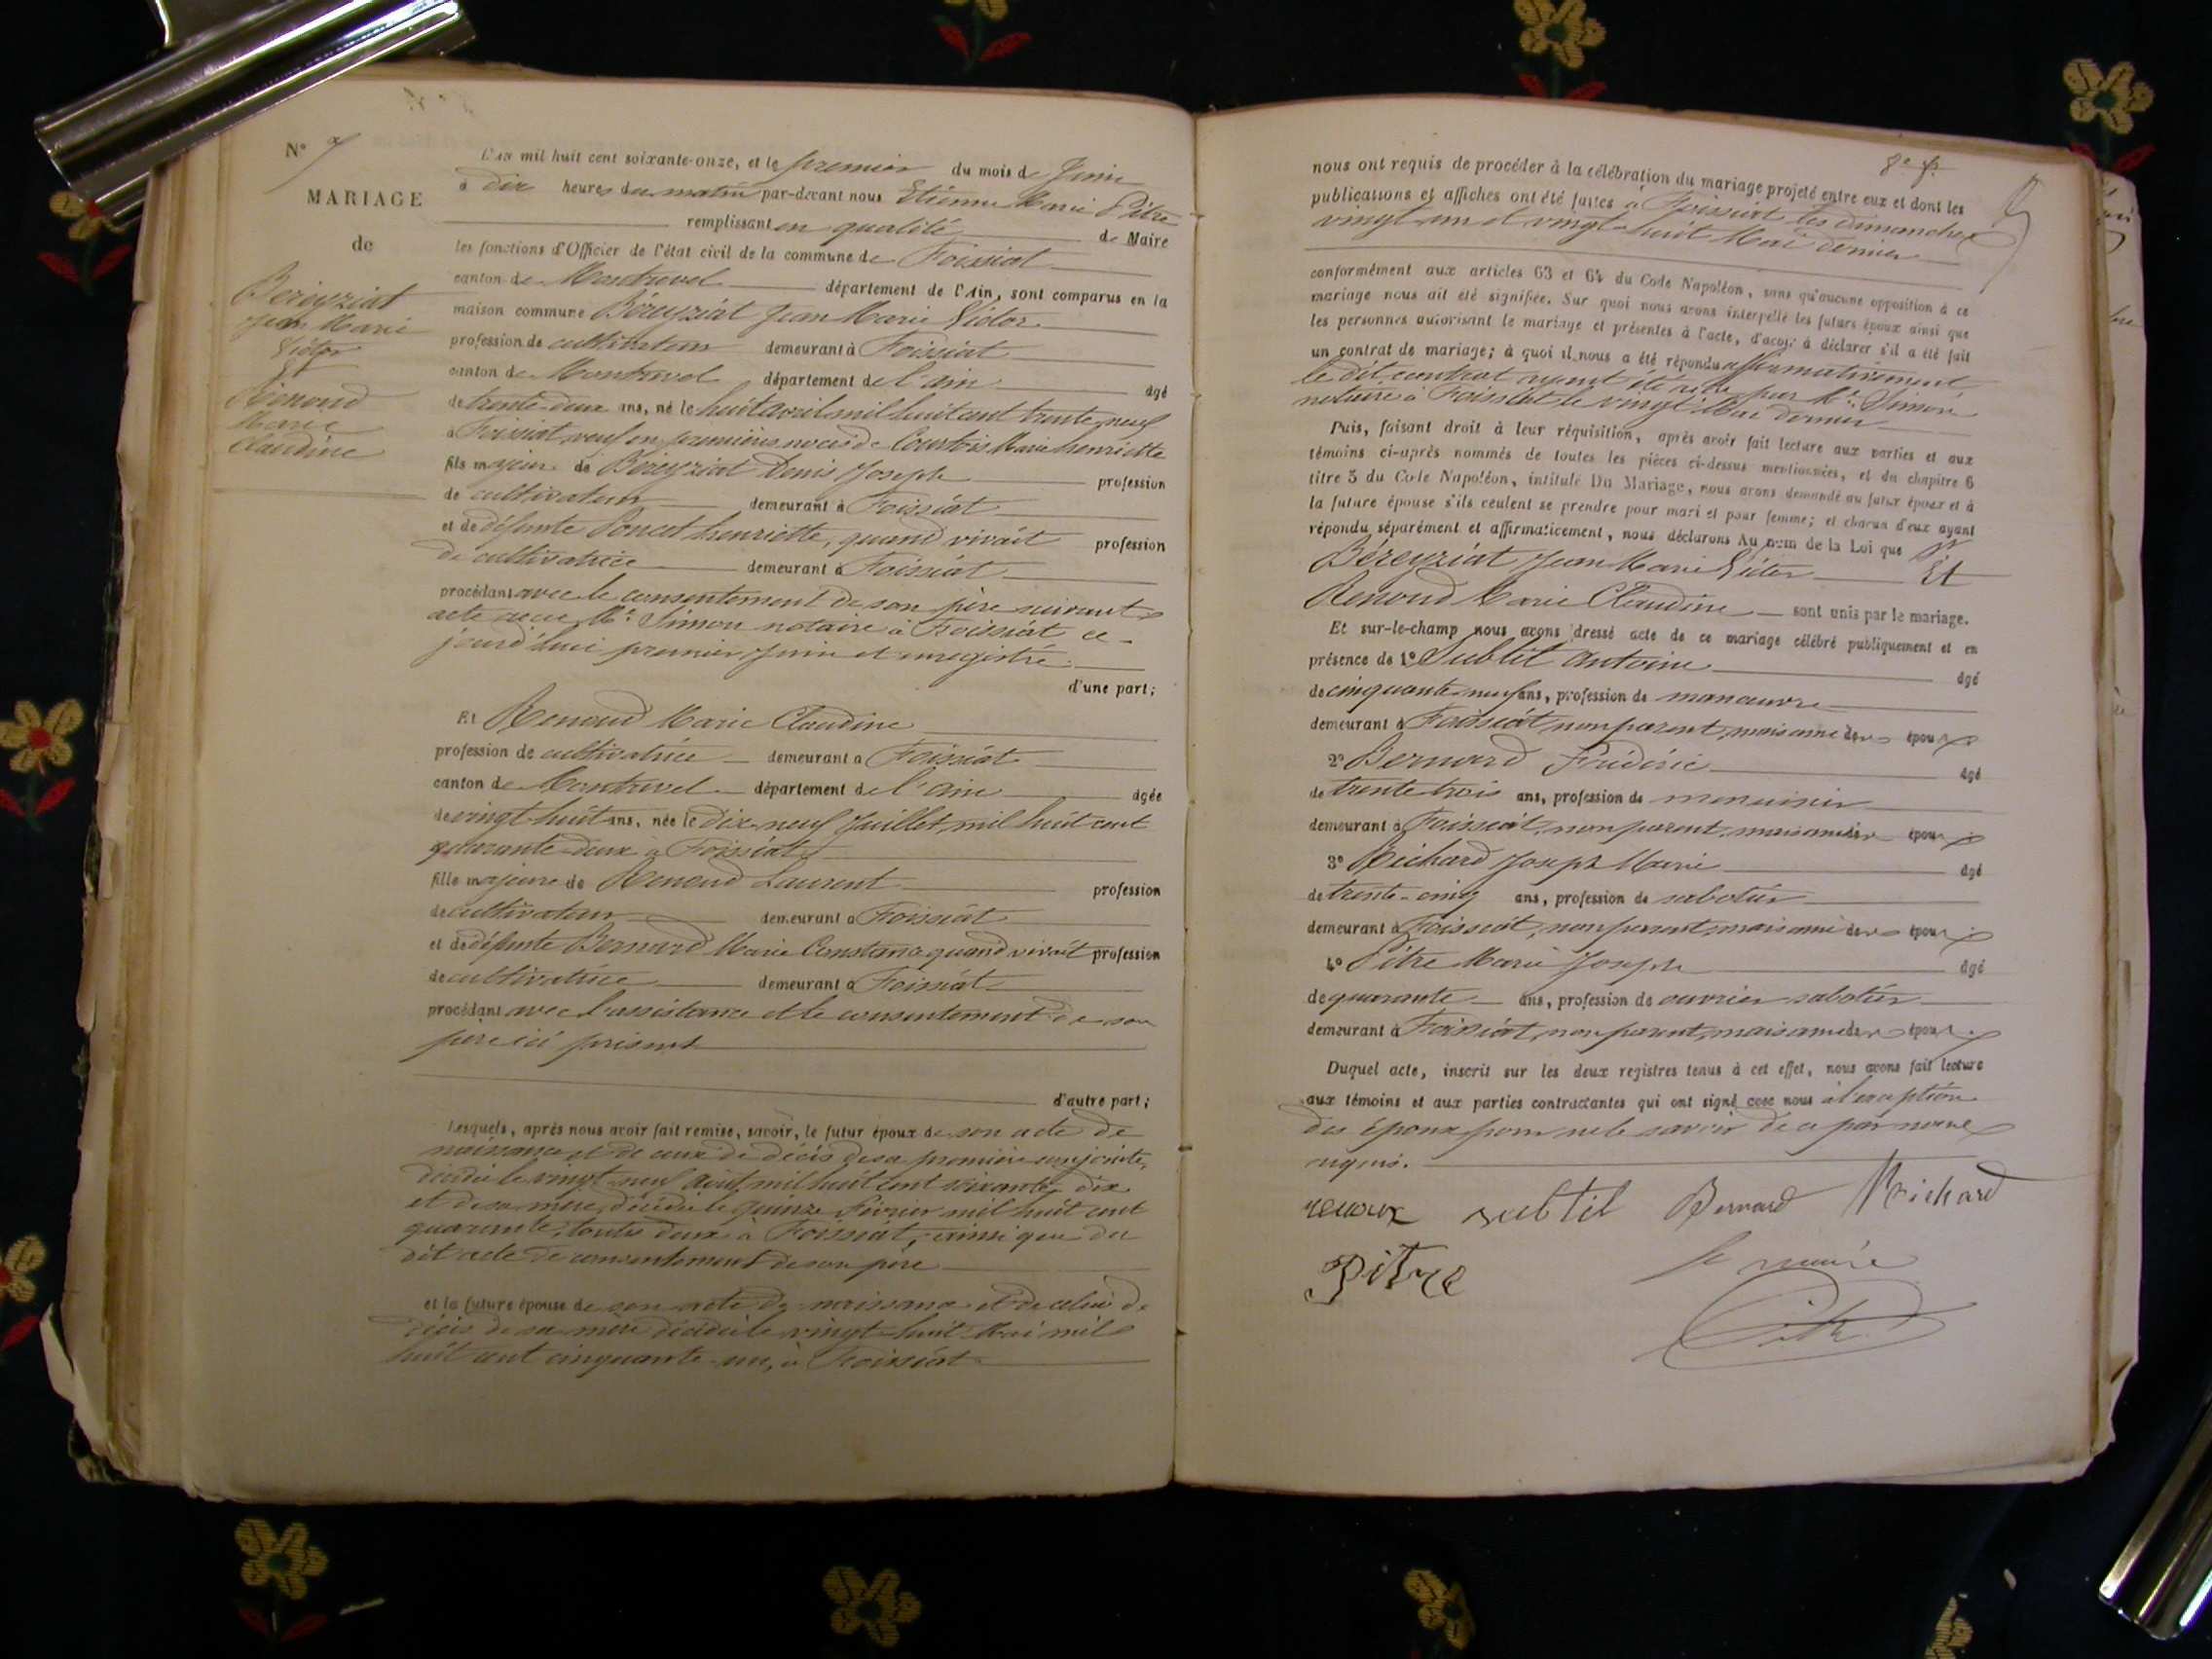 N° 7
MARIAGE
de
Béreyziat
Jean Marie
Victor
Et
Renoud
Marie
Claudine
L'an mil huit cent soixante-onze, et le premier du mois de Juin
à dix heures du matin par-devant nous Etienne Marie Pitre
remplissant en qualité de Maire
les fonctions d'Officier de l'état civil de la commune de Foissiat
canton de Montrevel département de l'Ain, sont comparus en la
maison commune Béreyziat Jean Marie Victor
profession de cultivateur demeurant à Foissiat
canton de Montrevel département de l'ain agé
de trente-deux ans, né le huit avril mil huit cent trente-neuf
à Foissiat, veuf en premières noces de Courtois Marie henriette
fils majeur de Béreyziat Denis Joseph profession
de cultivateur demeurant à Foissiat
et de défunte Poncet henriette, quand vivait profession
de cultivatrice demeurant à Foissiat
procédant avec le consentement de son père suivant
acte reçu Me Simon notaire à Foissiat ce
jourd'hui premier Juin et enregistré.
d'une part;
Et Renoud Marie Claudine
profession de cultivatrice demeurant à Foissiat
canton de Montrevel département de l'ain agée
de vingt-huit ans, née le dix-neuf Juillet mil huit cent
quarante-deux à Foissiat
fille majeure de Renoud Laurent profession
de cultivateur demeurant à Foissiat
et de défunte Bernard Marie Constance quand vivait profession
de cultivatrice demeurant à Foissiat
procédant avec l'assistance et le consentement de son
père ici présent
d'autre part;
Lesquels, après nous avoir fait remise, savoir, le futur époux de son acte de
naissance et de ceux de décès de sa première conjointe,
décédée le vingt-neuf août mil huit cent soixante-dix
et de sa mère, décédée le quinze Février mil huit cent
quarante, toutes deux à Foissiat, ainsi que du
dit acte de consentement de son père
et la future épouse de son acte de naissance et de celui de
décès de sa mère décédée le vingt-huit Mai mil
huit cent cinquante-un, à Foissiat
nous ont requis de procéder à la célébration du mariage projeté entre eux et dont les
publications et affiches ont été faites à Foissiat les dimanches
vingt-un et vingt-huit Mai dernier
conformément aux articles 63 et 64 du Code Napoléon, sans qu'aucune opposition à ce
mariage nous ait été signifiée. Sur quoi nous avons interpellé les futurs époux ainsi que
les personnes autorisant le mariage et présentes à l'acte, d'avoir à déclarer s'il a été fait
un contrat de mariage; à quoi il nous a été répondu affirmativement
le dit contrat ayant été reçu par Me Simon
notaire à Foissiat le vingt Mai dernier
Puis, faisant droit à leur réquisition, après avoir fait lecture aux parties et aux
témoins ci-après nommés de toutes les pièces ci-dessus mentionnées, et du chapitre 6
titre 5 du Code Napoléon, intitulé Du Mariage, nous avons demandé au futur époux et à
la future épouse s'ils veulent se prendre pour mari et pour femme; et chacun d'eux ayant
répondu séparément et affirmativement, nous déclarons Au nom de la Loi que
Béreyziat Jean Marie Victor Et
Renoud Marie Claudine sont unis par le mariage.
Et sur-le-champ nous avons dressé acte de ce mariage célébré publiquement et en
présence de 1° Subtil Antoine agé
de cinquante-neuf ans, profession de manœuvre
demeurant à Foissiat, non parent, mais ami des époux
2° Bernard Frédéric agé
de trente trois ans, profession de menuisier
demeurant à Foissiat, non parent, mais ami des époux
3° Richard Joseph Marie agé
de trente-cinq ans, profession de sabotier
demeurant à Foissiat, non parent, mais ami des époux
4° Pitre Marie Joseph agé
de quarante ans, profession de ouvrier sabotier
demeurant à Foissiat, non parent, mais ami des époux
Duquel acte, inscrit sur les deux registres tenus à cet effet, nous avons fait lecture
aux témoins et aux parties contractantes qui ont signé avec nous à l'exception
des époux pour ne le savoir de ce par nous
requis.
subtil Bernard Richard
Pitre
le maire
Pitre